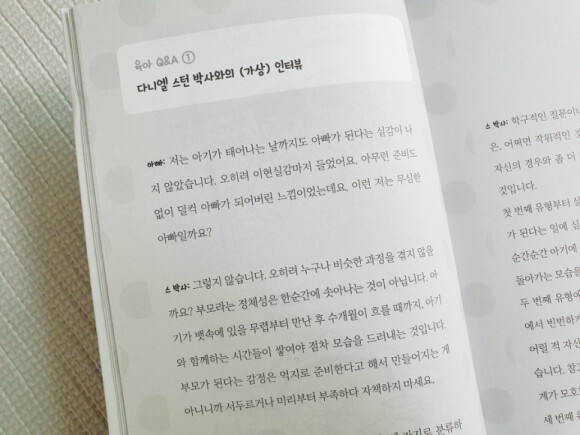 육아 Q&A ①
다니엘 스턴 박사와의 (가상) 인터뷰
아빠: 저는 아기가 태어나는 날까지도 아빠가 된다는 실감이 나
지 않았습니다. 오히려 이현실감마저 들었어요. 아무런 준비도
없이 덜컥 아빠가 되어버린 느낌이었는데요. 이런 저는 무심한
아빠일까요?
스 박사: 그렇지 않습니다. 오히려 누구나 비슷한 과정을 겪지 않을
까요? 부모라는 정체성은 한순간에 솟아나는 것이 아닙니다. 아
기가 뱃속에 있을 무렵부터 만난 후 수개월이 흐를 때까지, 아기
와 함께하는 시간들이 쌓여야 점차 모습을 드러내는 것입니다.
부모가 된다는 감정은 억지로 준비한다고 해서 만들어지는 게
아니니까 서두르거나 미리부터 부족하다 자책하지 마세요.
가지로 분류하
스 박사: 학구적인 질문이
은, 어쩌면 작위적인
자신의 경우와 좀 더
것입니다.
첫 번째 유형부터
가 된다는 일에
순간순간 아기에
돌아가는 모습을
두 번째 유형에
에서 빈번하게
어릴 적 자신
습니다. 참고
계가 모호
세 번째 유